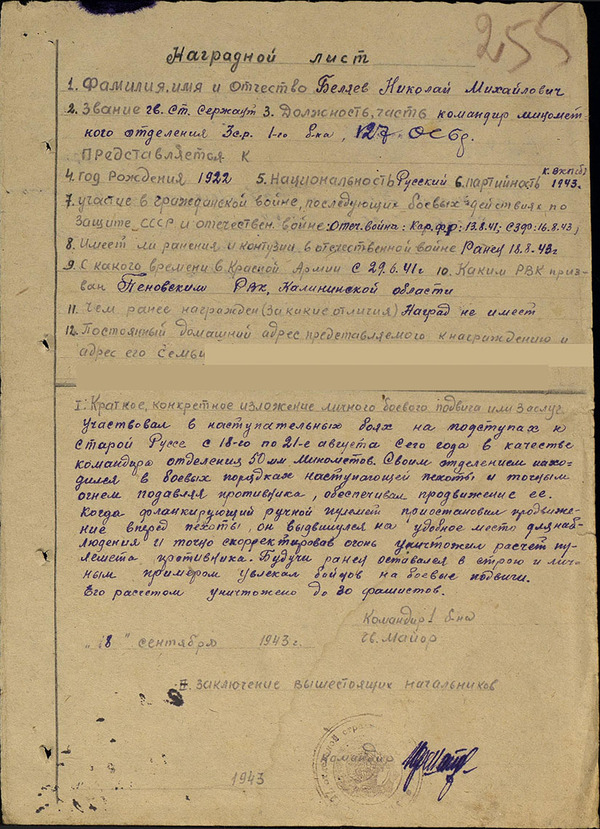 255
Наградной лист
1. Фамилия, имя и отчество Беляев Николай Михайлович
2. Звание гв. Ст. Сержант 3. Должность, часть командир миномет-
ного отделения 3с.р. 1-го б-на, 127 ОСбр.
Представляется к
4. год рождения 1922 5. Национальность Русский 6. партийность к. ВКП(б) 1943г.
7. участие в гражданской войне, последующих боевых действиях по
защите СССР и отечествен. войне: Отеч. война: Кар. фр: 13.8.41; СЗФр: 16.8.43
8. Имеет ли ранения и контузии в отечественной войне Ранен 18.8.43г
9. С какого времени в Красной Армии с 29.6.41г 10. Каким РВК приз-
ван Пеновским РВК, Калининской области
11. Чем ранее награжден (за какие отличия) Наград не имеет
12. Постоянный домашний адрес представляемого к награждению и
адрес его семьи
I. Краткое, конкретное изложение личного боевого подвига или заслуг
Участвовал в наступательных боях на подступах к
Старой Руссе с 18-го по 21-е августа сего года в качестве
командира отделения 50 мм минометов. Своим отделением нахо-
дился в боевых порядках наступающей пехоты и точным
огнем подавляя противника, обеспечивал продвижение ее.
Когда фланкирующий ручной пулемет приостановил продвиже-
ние вперед пехоты, он выдвинулся на удобное место для наб-
людения и точно скорректировав огонь уничтожил расчет пу-
лемета противника. Будучи ранен оставался в строю и лич-
ным примером увлекал бойцов на боевые подвиги.
Его расчетом уничтожено до 30 фашистов.
Командир 1 б-на
гв. Майор
"18" сентября 1943г.
II. Заключение вышестоящих начальников
Командир
1943